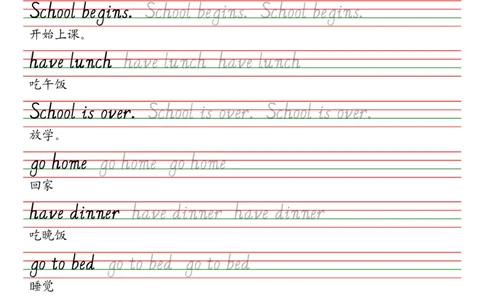 School begins. School begins. School begins.
开始上课。
have lunch have lunch have lunch
吃午饭
School is over. School is over. School is over.
放学。
go home go home go home
回家
have dinner have dinner have dinner
吃晚饭
go to bed go to bed go to bed
睡觉